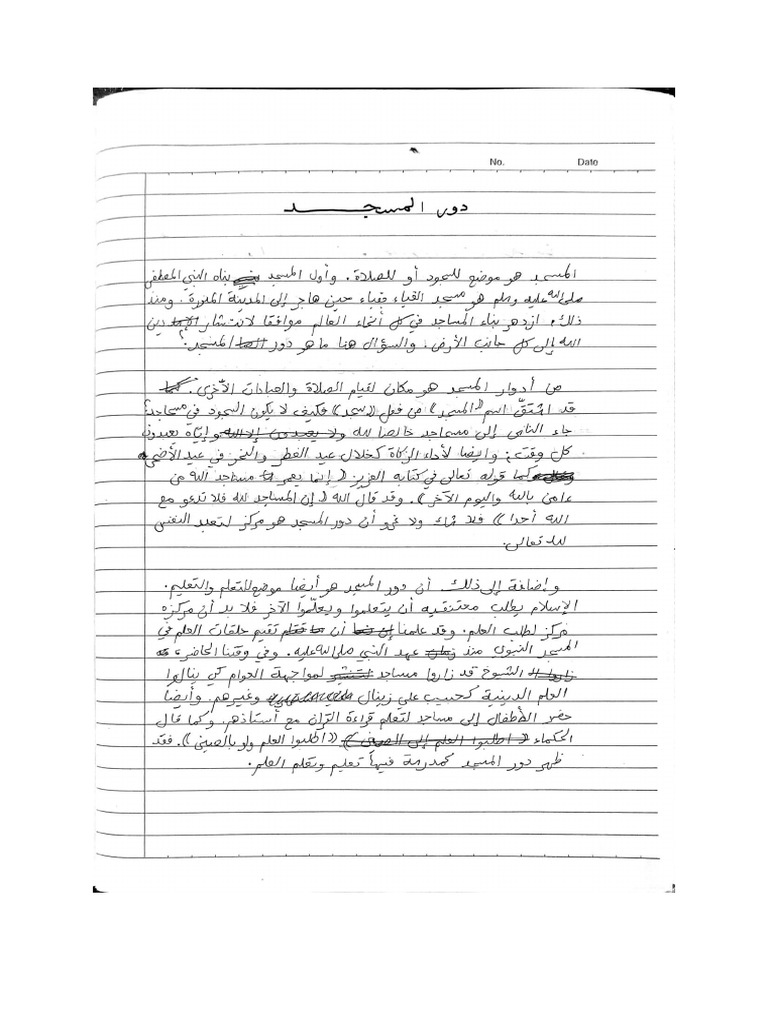 No. Date
دور المسجد
المسجد هو موضع للسجود أو للصلاة. وأول المسجد بناه النبي المصطفى
صلى الله عليه وسلم هو مسجد القباء قباء حين هاجر إلى المدينة المنورة. ومنذ
ذلك، ازدهر بناء المساجد في كل أنحاء العالم موافقا لانتشار دين
الله إلى كل جانب الأرض. والسؤال هنا ما هو دور المسجد؟
من أدوار المسجد هو مكان لقيام الصلاة والعبادات الأخرى.
قد اشتق اسم ((المسجد)) من فعل ((سجد)) فكيف لا يكون السجود في مساجد؟
جاء الناس إلى مساجد خالصا لله وإياه يعبدون
كل وقت. وأيضا لأداء الزكاة كخلال عيد الفطر والنحر في عيد الأضحى
كما قوله تعالى في كتابه العزيز ((إنما يعمر مساجد الله من
ءامن بالله واليوم الآخر)). وقد قال الله ((إن المساجد لله فلا تدعو مع
الله أحدا)) فلا ولا غرو أن دور المسجد هو مركز لتعبد النفس
لله تعالى.
وإضافة إلى ذلك أن دور المسجد هو أيضا موضع للتعلم والتعليم.
الإسلام يطلب معتنقيه أن يتعلموا ويعلموا الآخر فلا بد أن مركزه
مركز لطلب العلم. وقد علمنا أن تقيم حلقات العلم في
المسجد النبوي منذ عهد النبي صلى الله عليه. وفي وقتنا الحاضرة
الشيوخ قد زاروا مساجد لمواجهة العوام كي ينالوا
العلم الدينية كحبيب علي زينال وغيرهم. وأيضا
حضر الأطفال إلى مساجد لتعلم قراءة القرآن مع أستاذهم. وكما قال
الحكماء ((اطلبوا العلم ولو بالصين)). فقد
ظهر دور المسجد كمدرسة فيها تعليم وتعلم العلم.